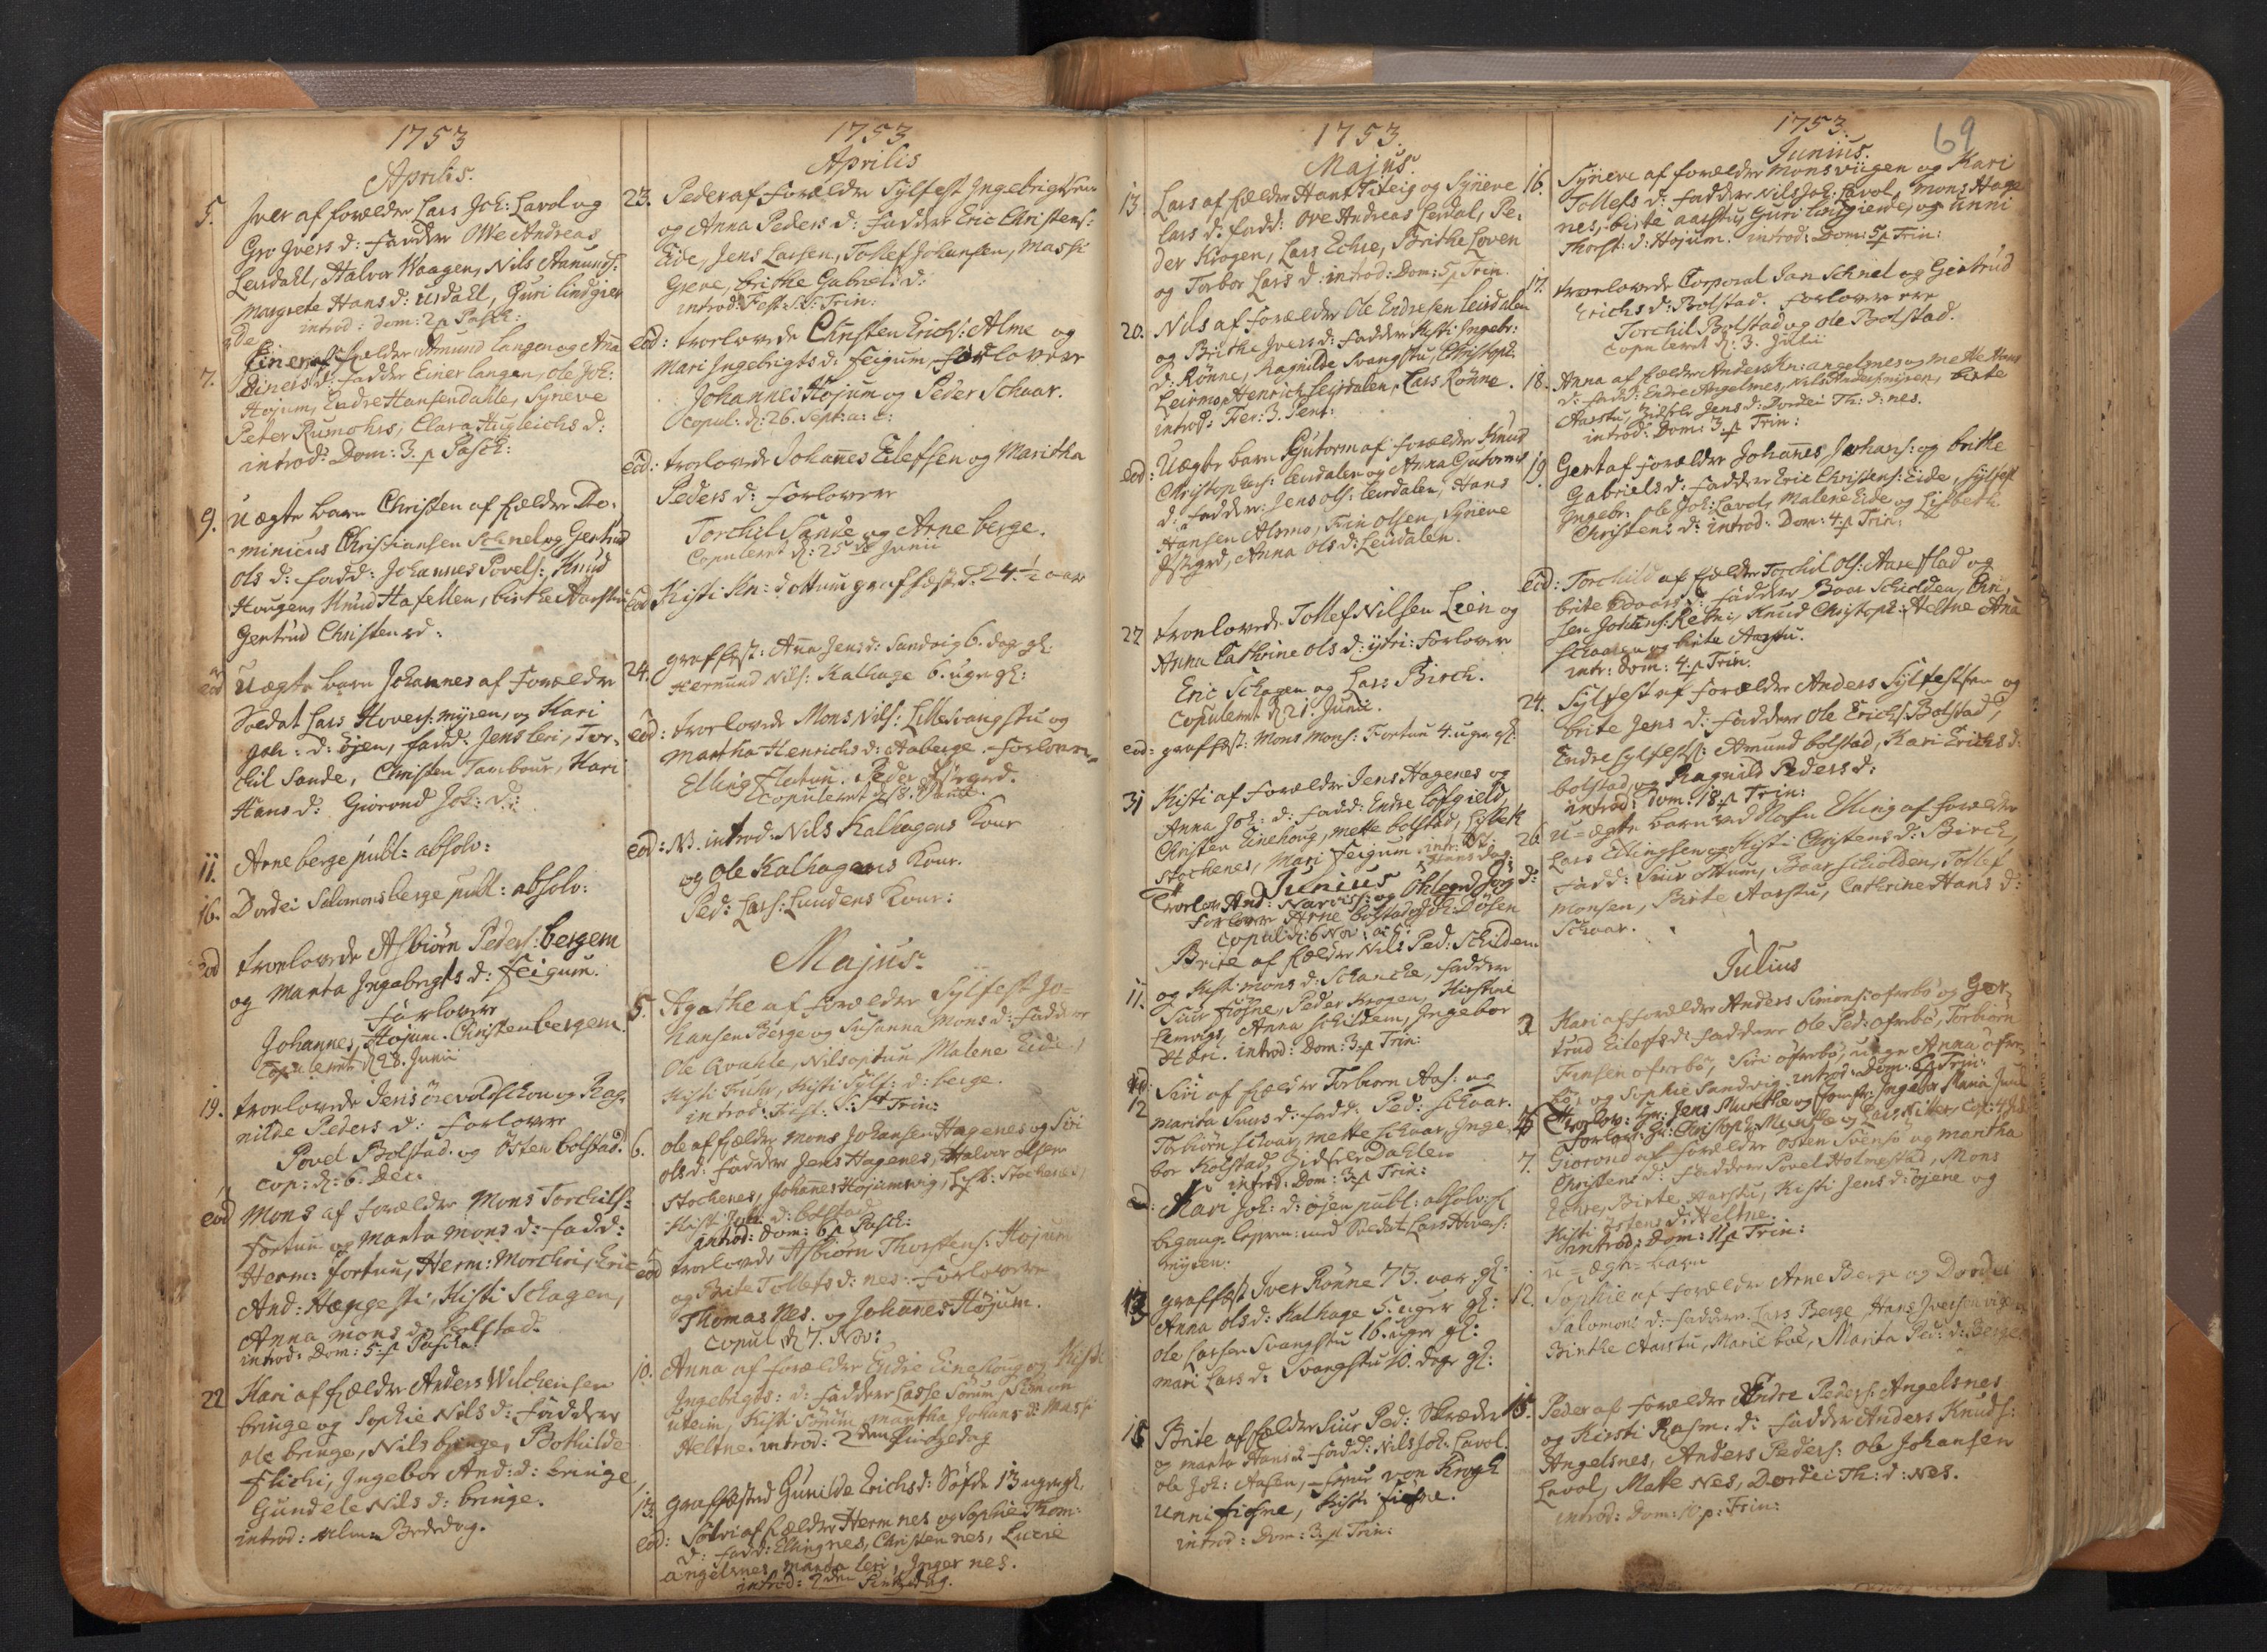 1753
Aprilis.
5. Iver af forældre Lars Joh: Lavol og
Gro Ivers d: faddre Owe Andreas
Leirdahl, Halvor Haagen, Nils Amunds:
Margrete Hans d: Usdahl, Guri lindgier
de
introd: dom: 2 p Pasch:
7. Einer af fælder Amund Langen og Ana
Einers d: faddr Einer langen, Ole Joh:
Højum, Endre Hansen dahle, Syneve
Peter Rumohrs, Clara Hugleichs d:
introd: Dom: 3. p Pasch:
9. Uægte barn Christen af fælder Do-
minicus Christiansen Schnel og Gertrud
Ols d: fadd: Johannes Povels: Knud
Hougen, Knud Hafellen, birthe Aarstu
Gertrud Christens d:
eod Uægte barn Johannes af forældre
Soldat Lars Hovers: myren, og Kari
Joh: d: öjen, fadd: Jens leri, Tor-
chil Sande, Christen Tambour, Kari
Hans d: Giorond Joh: d:
11. Arne berge publ: absolv:
16. Dordei Salomons berge publ: absolv:
eod troelovede Asbiørn Peders: bergem
og Marta Ingebrigts d: feigum.
forlovere
Johannes Højum. Christen bergem.
Copuleret d. 28. Junii
19. troelovede Jens örevoldschou og Rag-
nilde Peders d: forlovere
Povel Bolstad. og Østen bolstad.
cop: d: 6. Dec:
eod Mons af forældre Mons Torchils:
fortun og Marta Mons d: fadd:
Herm: fortun, Herm: Morchri, Eric
And: Hæggesti, Kisti Schagen,
Anna Mons d: bolstad.
introd: Dom: 5 p Pascha:
22 Kari af fælder Anders Wilchensen
bringe og Sophie Nils d: faddre
Ole bringe, Nils bringe, Bothilde
flichi, Ingebor And: d: bringe,
Gundele Nils d: bringe.
introd: alm: Bededag.
1753
Aprilis
23. Peder af forældre Sylfest Ingebrigtsen
og Anna Peders d: faddre Eric Christens:
Eide, Jens Larsen, Tollef Johansen, Massi
Greve, birthe Gabriels d:
introd: Fest: SS: Trin:
eod: troelovede Christen Erichs: Alme og
Mari Ingebrigts d: feigum, forlovere
Johannes Højum og Peder Schaar.
Copul: d: 26. Sept: a: c:
eod: troelovede Johannes Eilefsen og Maritha
Peders d: forlovere
Torchil Sande og Arne berge.
Copuleret d: 25 de Junii
Eod Kisti Kn: d ottum graffæst: 24 1/2 aar
24. graffæst: Anna Jens d: Sandvig 6. dage gl:
Hermund Nils: Kalhage 6. uger gl:
eod: troelovede Mons Nils: Lillesvangstu og
Martha Henrichs d: Aaberge. forlovere
Elling Flatun. Peder
Copuleret d 8.
eod: NB. introd: Nils Kalhagens Kone
og Ole Kalhagens Kone.
Ped: Lars: Lundens Kone:
Majus.
5. Agathe af forældre Sylfest Jo-
hansen Berge og Susanna Mons d: faddere
Ole Qvahle, Nils optun, Malene Eide,
Kisti Fuhr, Kisti Sylf: d: berge.
introd: Fest: S:St Trin:
6. Ole af fælder Mons Johansen Hagenes og Siri
Ols d: faddre Jens Hagenes, Halvor Olsen
Stochenes, Johannes Højumsvig, Stochenes,
Kisti Joh: d: bolstad
introd: Dom: 6 p Pasch:
eod troelovede Asbiørn Thorstens: Højum
og Brite Tollefs d: nes: forlovere
Thomas Nes. og Johannes Højum.
Copul d 7. Nov:
10. Anna af forældre Endre Einehoug og Kisti
Ingebrigts: d: faddere Lasse Sørum, Simon
Uteim, Kisti Sørum, Martha Johans d: Massi
Heltne. introd: 2den Pintzedag
13. graffæsted Gunilde Erichs d: Söfde 13 uger gl.
eod: Sølvi af fælder Herm nes og Sophie Thom:
d: fadd: Elling nes, Christen nes, Lucie
angelsnes, Marta leri, Inger nes.
introd: 2den Pintzedag.
1753.
Majus.
13 Lars af fælder Hans Titeig og Syneve
Lars d: fadd: Ove Andreas Leirdal, Pe-
der Krogen, Lars Echre, Brithe Loven
og Torbor Lars d: introd: Dom: 5 p Trin.
20. Nils af forældre Ole Endresen leirdalen
og Brithe Ivers d: faddere Kisti Ingebr:
d: Rönne, Ragnilde Svangstu, Christoph
Leirmo, Henrich Leirdalen, Lars Rönne.
introd: Fer: 3. Pent:
Eod: Uægte barn Gutorm af forældre Knud
Christophers: leirdalen og Anna Gutorms
d: faddere: Jens Ols: leirdalen, Hans
Hansen Alsmo, Trin Olsen, Syneve
Anna Ols d: Leirdalen.
27 troelovede Tollef Nilsen Lien og
Anna Cathrine Ols d: ytri: forlovere
Eric Schagen og Lars Birch.
Copuleret d: 21. Junii.
eod: graffæst: Mons Mons: Fortun 4. uger gl:
31 Kisti af forældre Jens Hagenes og
Anna Joh: d: fadd: Endre lofgield,
Christen Einehoug, Mette bolstad, Lisbeth
Stochenes, Mari feigum. intr: St:
Hans dag.
Junius
Troelov: And: Narviss: og Ohlegerd Jörg: d:
Forlovere Arne bolstad og Joh: Døsen
Copul: d: 6 Nov: a: c:
11. Brite af fælder Nils Ped: Schildem
og Kisti Mons d: Schanche, faddere
Siur fiøsne, Peder Krogen, Kirstine
Lemvigs, Anna Schildem, Ingebor
introd: Dom: 3. p Trin:
eod: Siri af fælder Torbiorn Aas: og
12 Marita Siurs d: fadd: Ped: Schaar.
Torbiörn Schaar, Mette Schaar, Inge-
bor Kolstad, Zidsele Dahlen
introd: Dom: 3 p Trin:
eod: Kari Joh: d: öjen publ: absolv:
begang: leierm: med Soldat Lars Hovers:
myren:
13 graffæst Iver Rönne 73. aar gl:
Anna Ols d: Kalhage 5. uger gl:
Ole Larsen Svangstu 16. uger gl:
Mari Lars d: Svangstu 10. dage gl:
15 Brite af fælder Siur Ped: Skræder
og Marta Hans d: fadd: Nils Joh: Lavol.
Ole Joh: Aasen, frue von Krogh
Unni fiosne, Kisti fiosne.
introd: Dom: 3. p Trin:
1753.
69
Junius.
16. Syneve af forældre Mons viigen og Kari
Tollefs d: faddere Nils Joh: Lavol, Mons Hage
nes, birte aarstu, Guri lindgierde, og Unni
Thorst: d: Højum. introd: Dom: 5 p Trin:
17. troelovede Corporal Jan Schnel og Giertrud
Erichs d: Bolstad. forlovere ere
Torchil Bolstad og Ole Bolstad.
copuleret d: 3. Julii
18. Anna af fælder Anders Kn: angelsnes og Mette Hans
d: fadd: Endre Angelsnes, Nils Anders: myren, birte
Aarstu, Zidsele Jens d: Dordei Th: d: nes.
introd: Dom: 3. p Trin:
19 Gert af forældre Johannes Joehans: og brithe
Gabriels d: faddere Eric Christens: Eide, Sylfest
Ingebr: Ole Joh: Lavol, Malene Eide og Lisbeth
Christens d: introd: Dom: 4. p Trin:
Eod: Torchild af fælder Torchil Ols: Aarestad og
brite d: faddere Baar Schiolden, Chri-
sen Johans: Retni, Knud Christoph: Heltne Ana
Schaaren og birte Aarstu.
intr: Dom: 4. p Trin:
24. Sylfest af forældre Anders Sylfestsen og
brite Jens d: faddere Ole Erichs: Bolstad,
Endre Sylfests: Amund bolstad, Kari Erichs d:
bolstad, og Ragnild Peders d:
introd: Dom: 18 p Trin:
26. u=ægte barn ved Nafn Elling af forældre
Lars Ellingsen og Kisti Christens d: Birch,
fadd: Siur Ottum, Baar Schiolden, Tollef
Monsen, Birte Aarstu, Cathrine Hans d:
Schaar.
Julius
2 Kari af forældre Anders Simons: ofrebø og Ger-
trud Eilefs d: faddere Ole Ped: ofrebø, Torbiørn
Finsen ofrebø, Siri ofrebø, Anna ofre-
bø, og Sophie Sandvig. introd: Dom: 6 p Trin:
Troelov: Hr: Jens Munthe og Jomfr: Ingebor Maria Juul
Forlov: Hr: Christoph: Munthe og Lars Ritter, Cop: 4 Jul:
7. Giorond af forældre Østen Svensø og Mantha
Christens d: faddere Povel Holmestad, Mons
Echre, Birte Aarstu, Kisti Jens d: øjene og
Kisti Østens d: Heltne.
introd: Dom: 11 p Trin:
u=ægte barn
12. Sophie af forældre Arne Berge og Dordei
Salomons d: faddere Lars Berge, Hans Iverson vigen
Birthe Aarstu, Marie boe, Marita Ped: d: Berge
15. Peder af forældre Endre Peders: Angelsnes
og Kirsti Rasm: d: faddere Anders Knuds:
Angelsnes, Anders Peders: Ole Johansen
Lavol, Mette Nes, Dordei Th: d: Nes.
introd: Dom: 10 p: Trin: